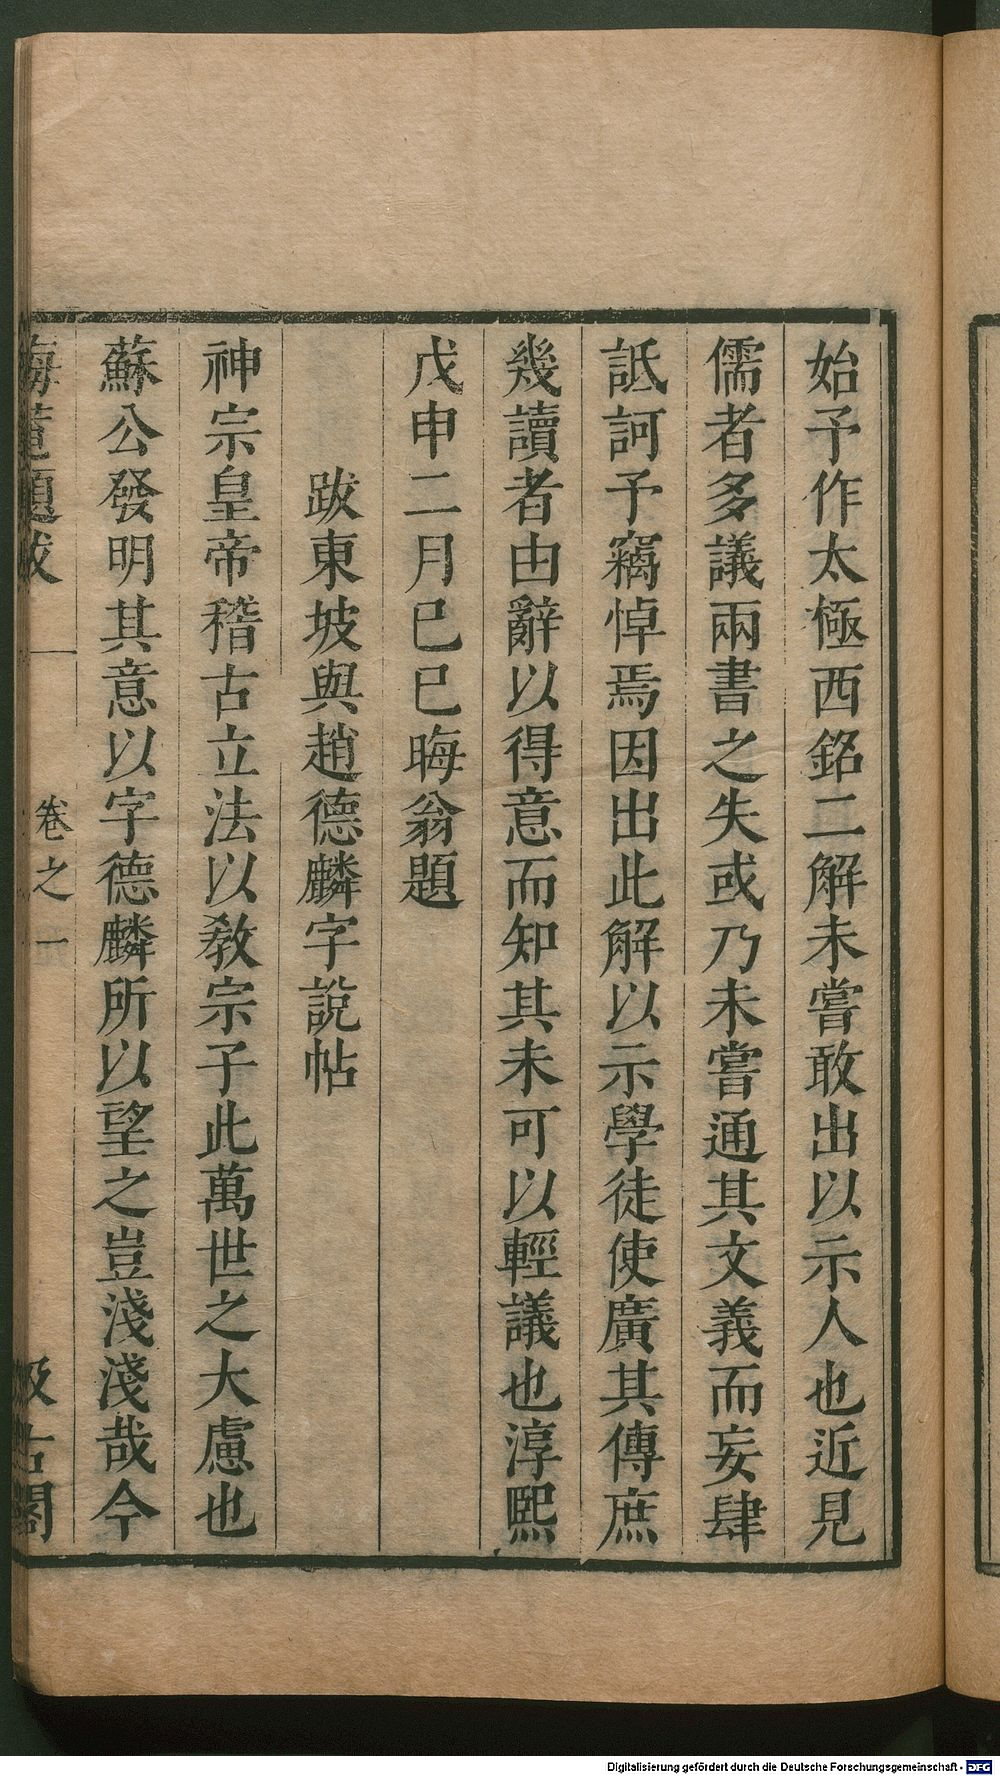 始予作太極西銘二解未嘗敢出以示人也近見
儒者多議兩書之失或乃未嘗通其文義而妄肆
詆訶予竊悼焉因出此解以示學徒使廣其傳庶
幾讀者由辭以得意而知其未可以輕議也淳熙
戊申二月巳巳晦翁題
跋東坡與趙德麟字說帖
神宗皇帝稽古立法以敎宗子此萬世之大慮也
蘇公發明其意以字德麟所以望之豈淺淺哉今
晦菴題跋 卷之一 汲古閣
Digitalisierung gefördert durch die Deutsche Forschungsgemeinschaft - DFG